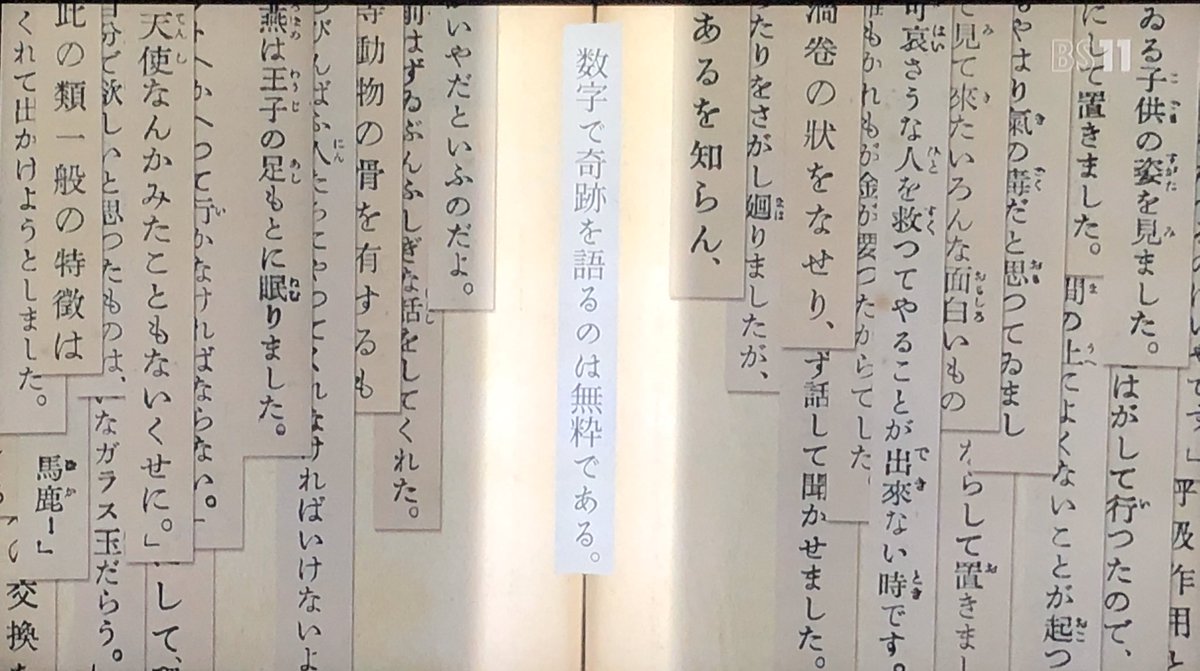 BS11
平及乍用
ゐる子供の姿を見ました。
はがして行つたので、
にして置きました。
間の上によくないことが起つ
もやはり氣の毒だと思つてゐまし
て見て來たいろんな面白いもの
らして置きま
可哀さうな人を救つてやることが出來ない時です。
誰もかれもが金が要つたからてした
渦巻の狀をなせり、
ず話して聞かせました。
たりをさがし廻りましたが、
あるを知らん、
数字で奇跡を語るのは無粋である。
いやだといふのだよ。
前はずゐぶんふしぎな話をしてくれた。
等動物の骨を有するも
ればいけないよ
燕は王子の足もとに眠りました。
かへつて行かなければならない。
天使なんかみたこともないくせに。」
して、
自分で欲しいと思つたものは、
いなガラス玉だらう。
此の類一般の特徴は
馬鹿ー」
くれて出かけようとしました。
交換